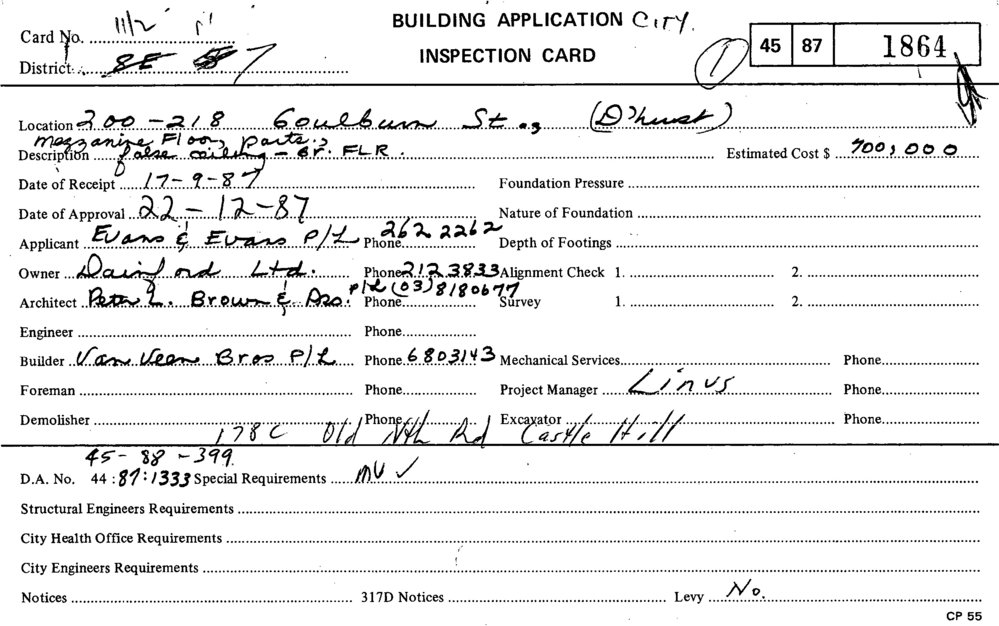 Card No. 11/2
BUILDING APPLICATION CITY.
INSPECTION CARD
1
45 87 1864
District SE 7
Location 200-218 Goulburn St., (D'hurst)
Mezzanine Floor, parts;
Description false ceiling - Gr. FLR.
Estimated Cost $ 700,000
Date of Receipt 17-9-87
Foundation Pressure
Date of Approval 22-12-87
Nature of Foundation
Applicant Evans & Evans P/L Phone 262 2262
Depth of Footings
Owner Dainford Ltd. Phone 212 3833
Alignment Check 1. 2.
Architect Peter L. Brown & Aso. P/L Phone (03) 8180677
Survey 1. 2.
Engineer Phone
Builder Van Veen Bros P/L Phone 6803143
Mechanical Services Phone
Foreman Phone
Project Manager Linus Phone
Demolisher Phone
Excavator Phone
178C Old Nth Rd Castle Hill
45-88-399.
D.A. No. 44 : 87:1333 Special Requirements MV ✓
Structural Engineers Requirements
City Health Office Requirements
City Engineers Requirements
Notices 317D Notices Levy No.
CP 55